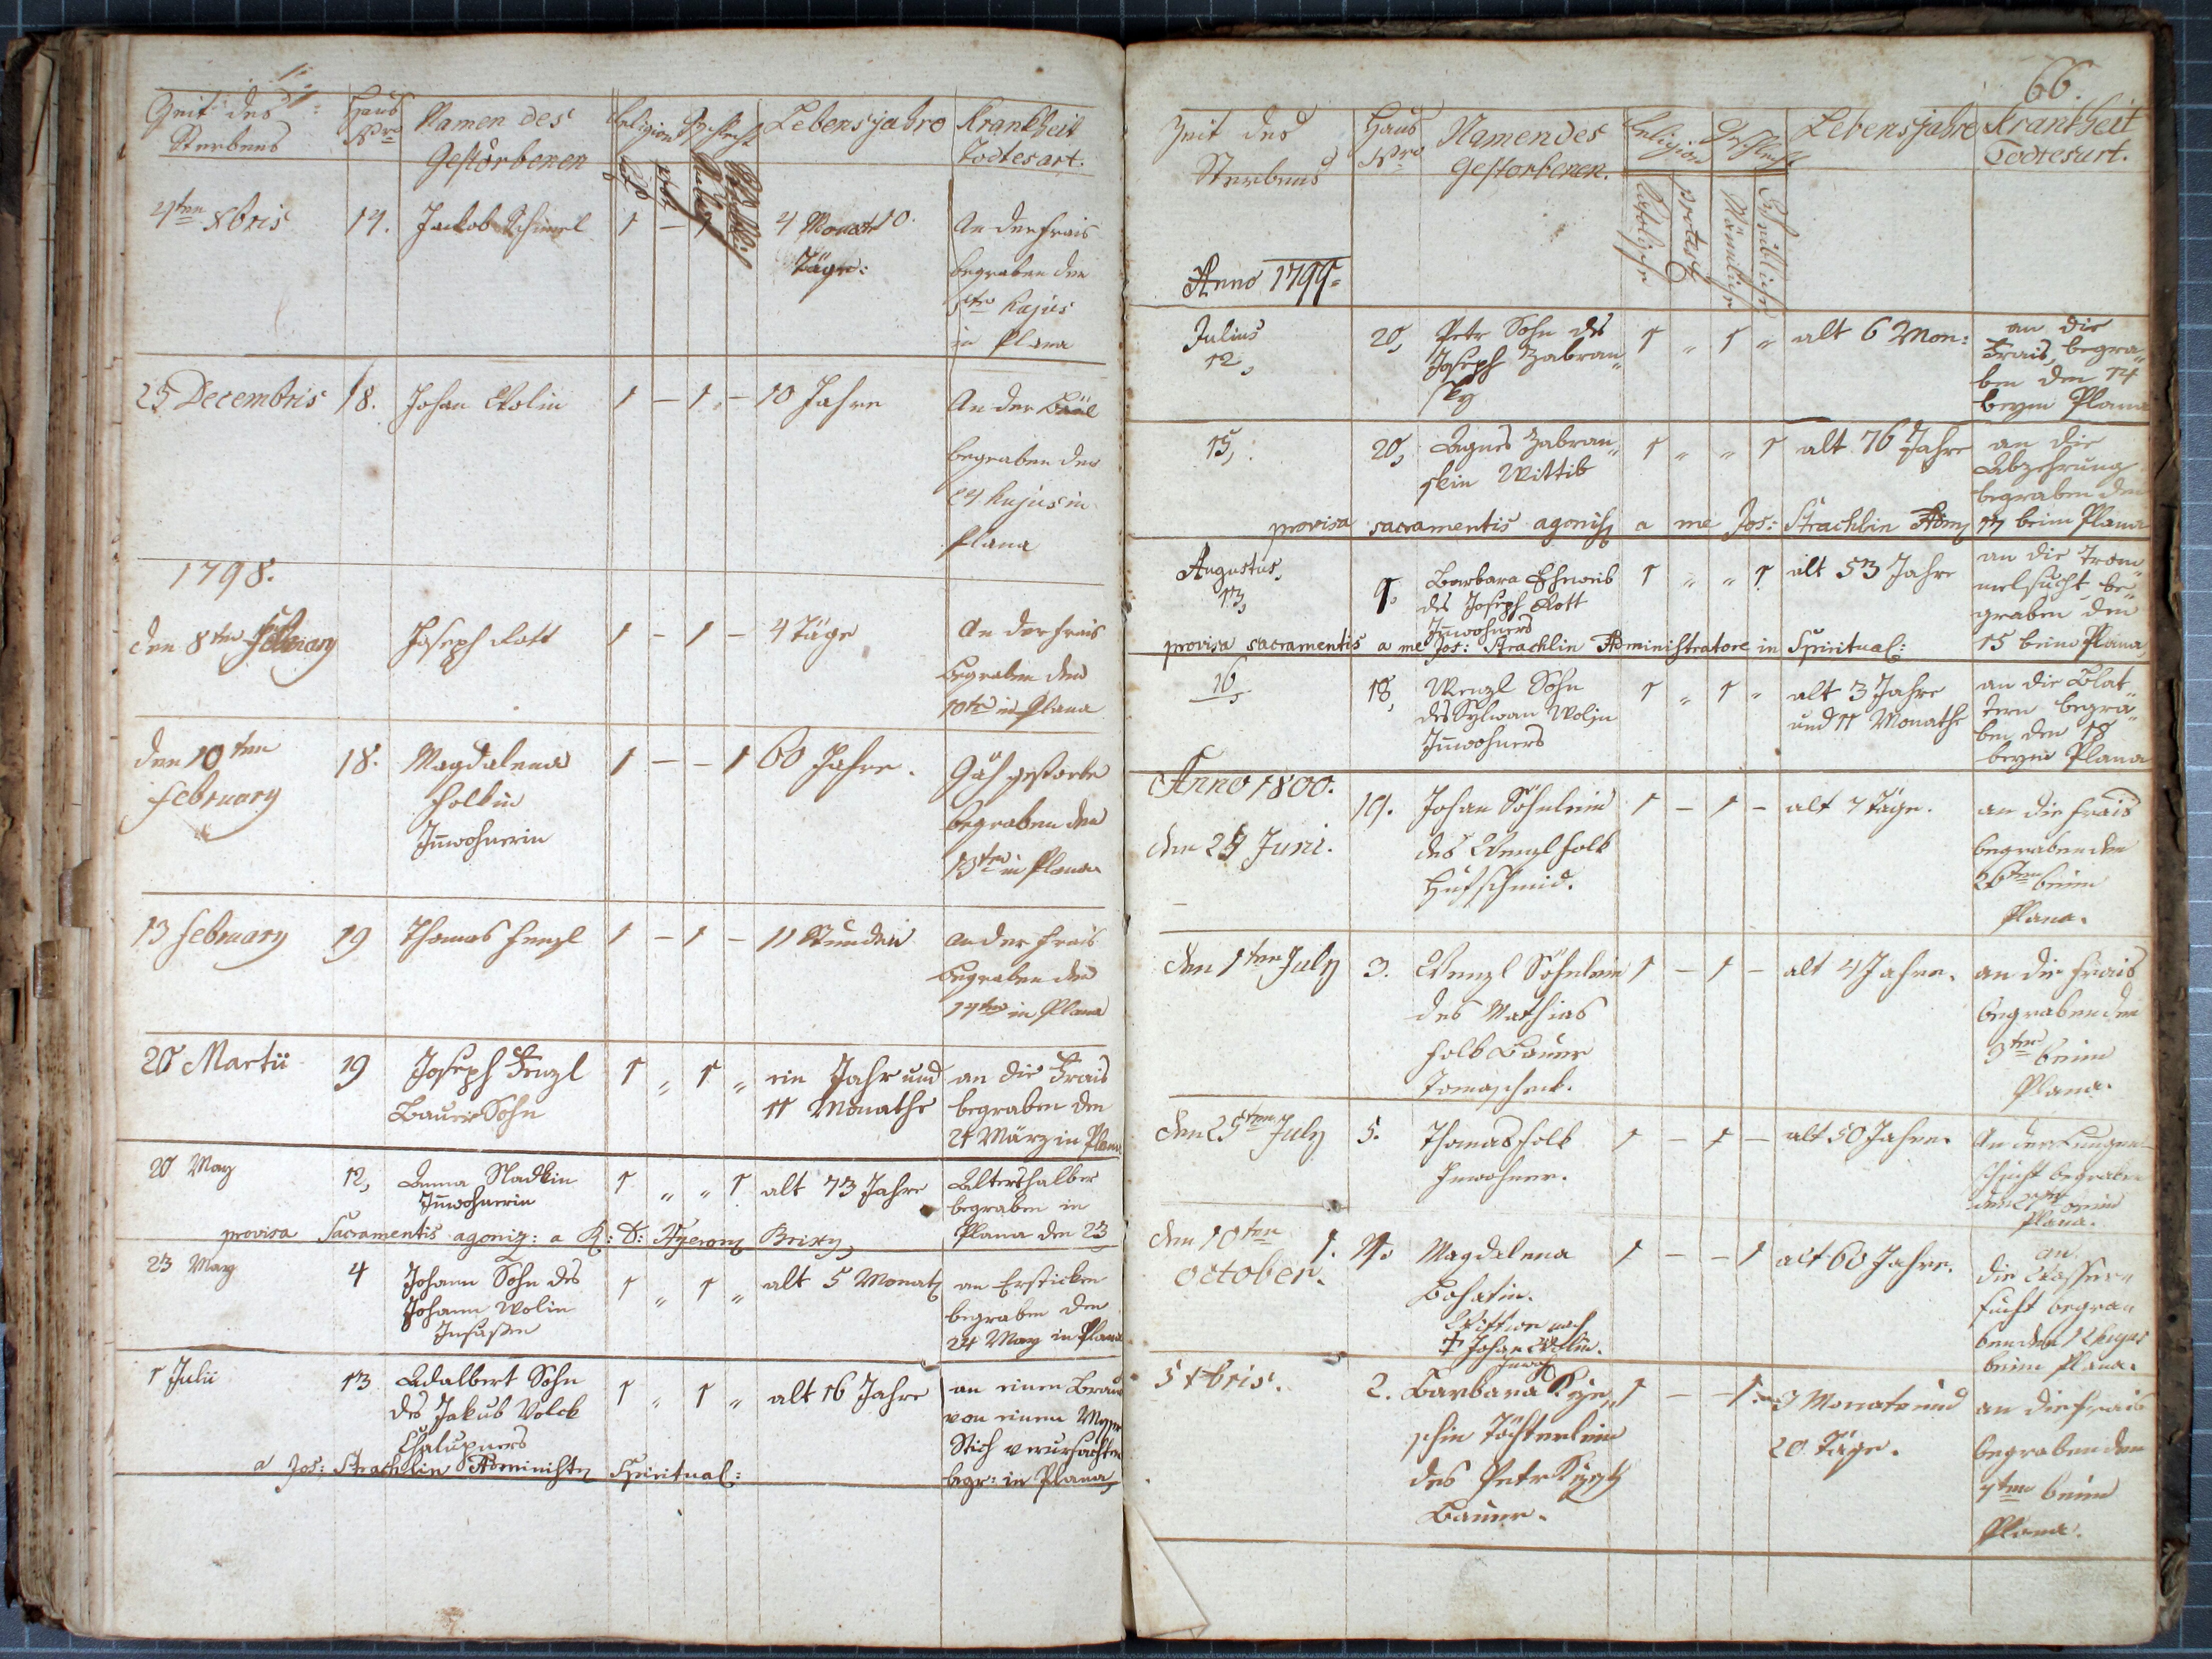 Zeit des
Sterbens
Haus
Nro
Namen des
Gestorbenen
Religion
Geschlecht
Lebensjahre
Krankheit
Todtesart.
4ten Xbris
14.
Jackob
1 –
4 Monate 10.
Täge:
An der Frais
begraben den
hujus
in Plana
23 Decembris
18.
Johan Wolin
1 – 1 –
10 Jahre
An der
begraben den
24 hujus in
Plana
1798.
den 8ten February
Joseph Rott
1 – 1 –
4 Täge
An der Frais
begraben den
10ten in Plana
den 10ten
February
18.
Magdalena
Holbin
Inwohnerin
1 – – 1
60 Jahre.
Gäh gestorben
begraben den
13ten in Plana
13 February
19
Thomas Fenzl
1 – 1 –
11 Stunden
An der Frais
begraben den
14ten in Plana
20 Martii
19
Joseph Fenzl
Bauer Sohn
1 „ 1 „
ein Jahr und
11 Monathe
an die Frais
begraben den
21 März in Plana
20 May
12,
Anna Sladkin
Inwohnerin
1 „ „ 1
alt 73 Jahre
Altershalber
begraben in
Plana den 23
provisa Sacramentis agoniz: a R: D: Brixy
23 May
4
Johann Sohn des
Johann Wolin
Insassen
1 „ 1 „
alt 5 Monath
an Ersticken
begraben den
24 May in Plana
1 Julii
13
Adalbert Sohn
des Jakub Volck
Chalupners
1 „ 1 „
alt 16 Jahre
an einen Brand
von einem Messer
Stich verursachten
begr: in Plana
a Jos: Strachlin Spiritual:
66.
Zeit des
Sterbens
Haus
Nro
Namen des
Gestorbenen.
Religion
Geschlecht
Lebensjahre
Krankheit
Todtesart.
Katolische
protest
Männliche
Weibliche
Anno 1799.
Julius
12,
20,
Petr Sohn des
Joseph Zabran„
sky
1 „ 1 „
alt 6 Mon:
an die
Frais, begra„
ben den 14
beym Plana
15,
20,
Agnes Zabran„
skin Wittib
1 „ „ 1
alt 76 Jahre
an die
Abzehrung
begraben den
17 beim Plana
provisa sacramentis a me Jos: Strachlin
Augustus,
13,
9.
Barbara Eheweib
des Joseph Rott
Inwohners
1 „ „ 1
alt 53 Jahre
an die Trom„
melsucht be„
graben den
15 beim Plana
provisa sacramentis a me Jos: Strachlin Administratore in Spiritual:
16,
18,
Wenzl Sohn
des Sylvan Wolin
Inwohners
1 „ 1 „
alt 3 Jahre
und 11 Monathe
an die Blat„
tern begra„
ben den 18
beym Plana
Anno 1800.
den 25 Juni.
19.
Johan Söhnlein
des Wenzl Holb
Hufschmid.
1 – 1 –
alt 7 Täge.
an die Frais
begraben den
26ten beim
Plana.
den 1ten July
3.
Wenzl Söhnlein
des Mathias
Holb Bauer
Tomaschenk.
1 – 1 –
alt 4 Jahre.
an die Frais
begraben den
3ten beim
Plana.
den 25ten July
5.
Thomas Holb
Inwohner.
1 – 1 –
alt 50 Jahre.
An der Lungen
sucht begraben
den beim
Plana.
den 10ten
October.
Magdalena
Bohatin.
Wittwe nach
† Johan Wolin.
1 – – 1
alt 60 Jahre.
an
die Wasser„
sucht begra„
ben den 12 hujus
beim Plana.
5 Xbris.
2.
Barbara
Töchterlein
des Petr
Bauer.
1 – – 1
3 Monate und
20 Täge.
an die Frais
begraben den
7ten beim
Plana.